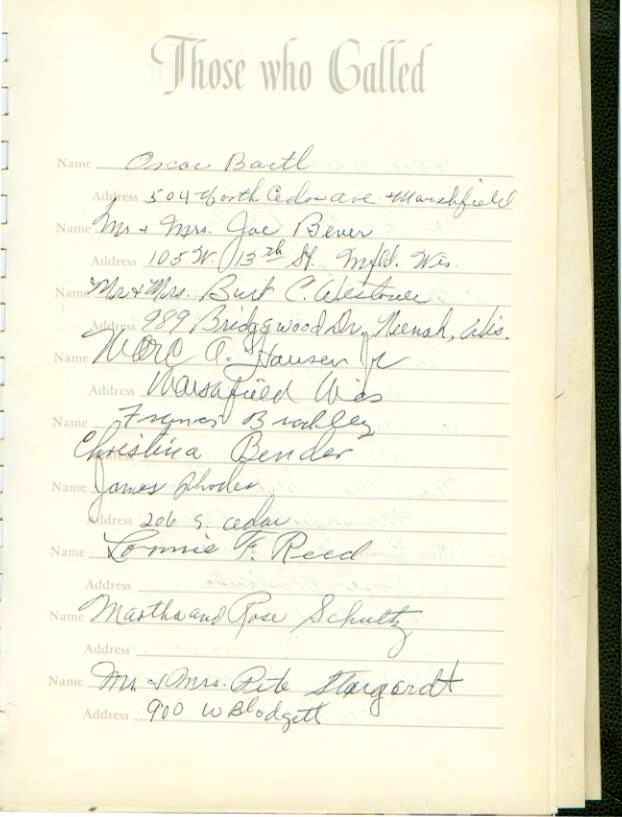 Those who Called
Name Oscar Bartl
Address 504 North Cedar Ave Marshfield
Name Mr + Mrs. Joe Bever
Address 105 W. 13th St. Mfld. Wis.
Name Mr & Mrs. Burt C. Westover
Address 989 Bridgewood Dr, Neenah, Wis.
Name Marc A. Hansen Jr
Address Marshfield Wis
Name Frances Bradley
Christina Bender
Name James Rhodes
Address 206 S. cedar
Name Lonnie F. Reed
Address
Name Martha and Rose Schultz
Address
Name Mr. & Mrs. Pete Stargardt
Address 900 W Blodgett